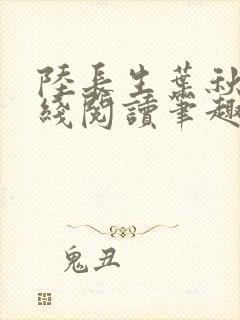 陸長生葉秋
綫閱讀筆趣
鬼丑